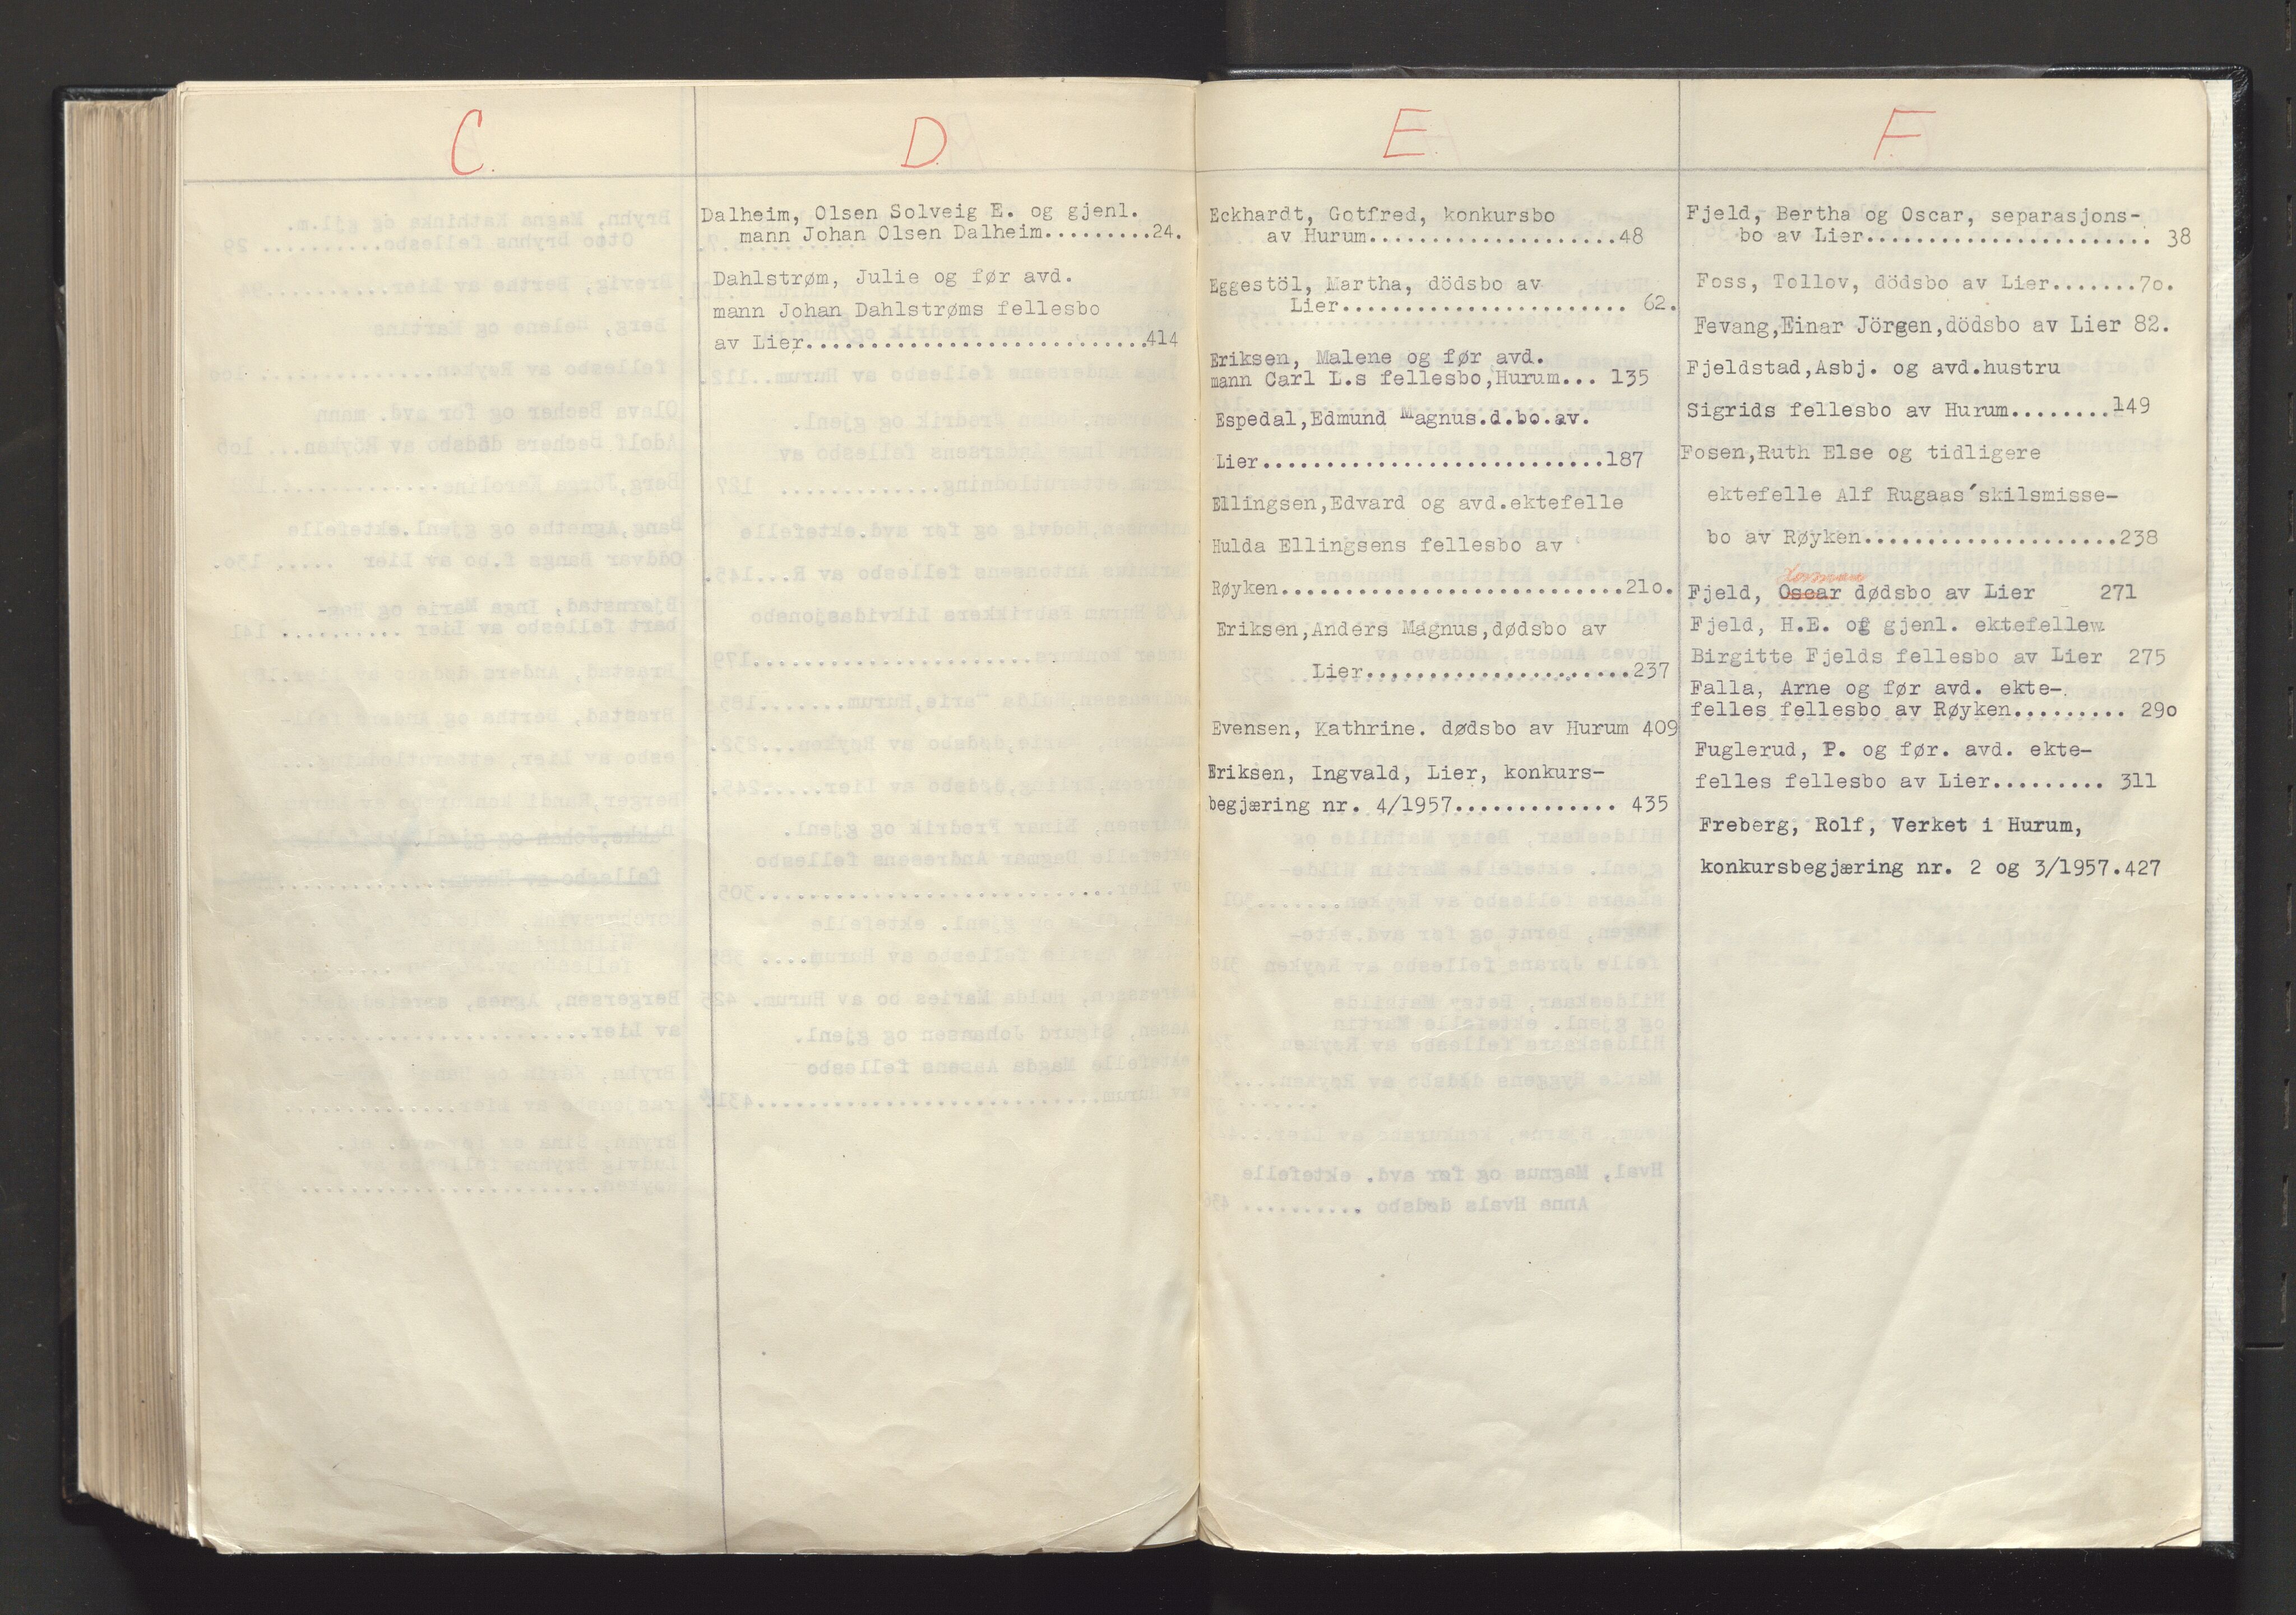 C.
D.
Dalheim, Olsen Solveig E. og gjenl.
mann Johan Olsen Dalheim.........24.
Dahlstrøm, Julie og før avd.
mann Johan Dahlstrøms fellesbo
av Lier...........................414
E.
Eckhardt, Gotfred, konkursbo
av Hurum.....................48
Eggestöl, Martha, dödsbo av
Lier........................ 62.
Eriksen, Malene og før avd.
mann Carl L.s fellesbo,Hurum... 135
Espedal,Edmund Magnus.d.bo.av.
Lier...........................187
Ellingsen,Edvard og avd.ektefelle
Hulda Ellingsens fellesbo av
Røyken...........................21o.
Eriksen,Anders Magnus,dødsbo av
Lier.....................237
Evensen, Kathrine. dødsbo av Hurum 409
Eriksen, Ingvald, Lier, konkurs-
begjæring nr. 4/1957............. 435
F.
Fjeld, Bertha og Oscar, separasjons-
bo av Lier....................... 38
Foss, Tollov, dödsbo av Lier.......7o.
Fevang,Einar Jörgen,dödsbo av Lier 82.
Fjeldstad,Asbj. og avd.hustru
Sigrids fellesbo av Hurum........149
Fosen,Ruth Else og tidligere
ektefelle Alf Rugaas´skilsmisse-
bo av Røyken....................238
Fjeld, Oscar dødsbo av Lier 271
Fjeld, H.E. og gjenl. ektefelle
Birgitte Fjelds fellesbo av Lier 275
Falla, Arne og før avd. ekte-
felles fellesbo av Røyken......... 29o
Fuglerud, P. og før. avd. ekte-
felles fellesbo av Lier......... 311
Freberg, Rolf, Verket i Hurum,
konkursbegjæring nr. 2 og 3/1957.427